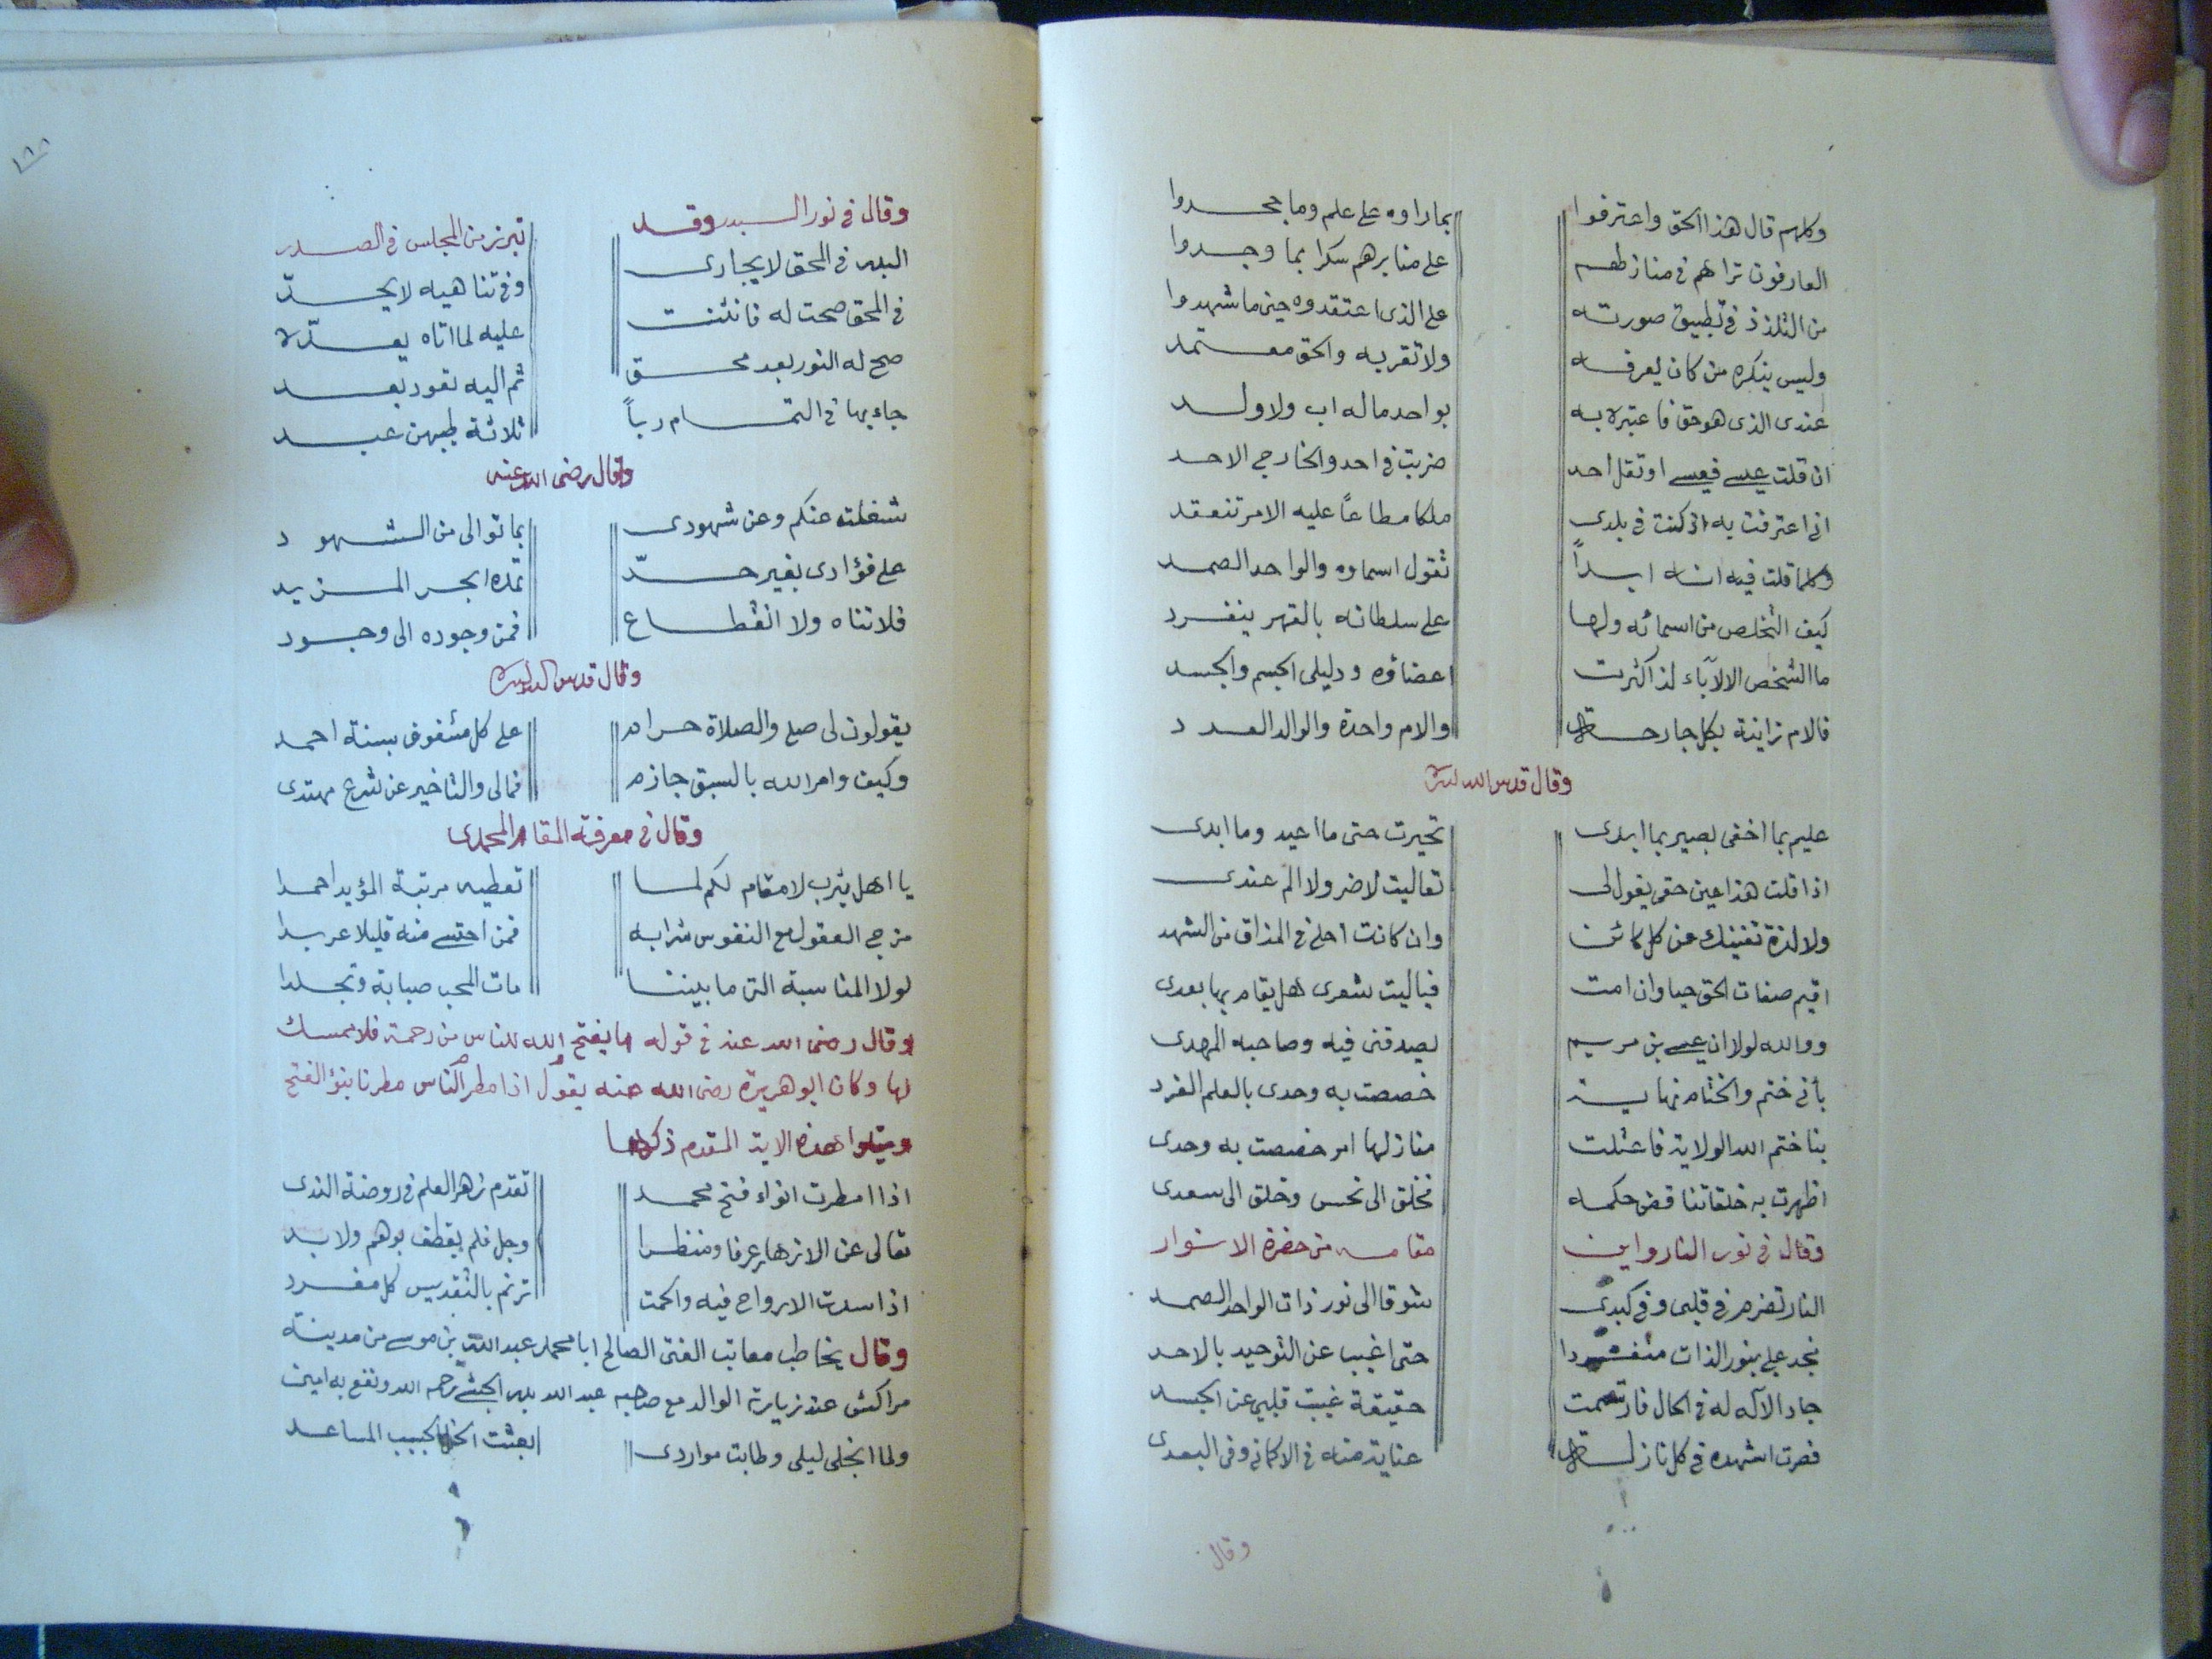 وكلهم قال هذا الحق واعترفوا بما راوه على علم وما جحدوا
العارفون تراهم في منازلهم على منابرهم سكرا بما وجدوا
من التلذذ في تطبيق صورته على الذى اعتقدوه حين ما شهدوا
وليس ينكره من كان يعرفه ولا تقر به والحق معتمد
عندى الذى هو حق فاعتبره به بواحد ماله اب ولا ولد
ان قلت عيسى فعيسى او تقل احد ضربت في احد والخارجي الاحد
انى اعترفت به اذ كنت في بلدى ملكا مطاعاً عليه الامر تنعقد
وكلما قلت فيه انه ابداً تقول اسماوه والواحد الصمد
كيف التخلص من اسمائه ولها على سلطانه بالقهر ينفرد
ما الشخص الا لآباء لذا كثرت اعضاؤه ودليلى الجسم والجسد
فالام زانية بكل جارحة والام واحدة والوالد العدد
وقال قدس الله سره
عليم بما اخفى بصير بما ابدى تحيرت حتى ما اعيد وما ابدى
اذا قلت هذا عين حقى يقول لى تعاليت لا ضر ولا الم عندى
ولا لذة تفنيك عن كل كائن وان كانت احلى في المذاق من الشهد
اقيم صفات الحق حيا وان امت فياليت شعرى هل يقام بها بعدى
ووالله لولا ان عيسى بن مريم يصدقنى فيه وصاحبه المهدى
بأنى ختم والختام نهاية خصصت به وحدى بالعلم الفرد
بنا ختم الله الولاية فاعتلت منازلها امر خصصت به وحدى
اظهرت به خلقاتنا قبض حكمه فخلق الى نحس وخلق الى سعدى
وقال في نور النار واين مقامه من حضرة الانوار
النار تضرم في قلبى وفي كبدى شوقا الى نور ذات الواحد الصمد
فجد على بنور الذات منفردا حتى اغيب عن التوحيد بالاحد
جاد الاله له في الحال فارتسمت حقيقة غيبت قلبى عن الجسد
فصرت اشهده في كل نازلة عناية منه في الادنى وفى البعدى
وقال
١٨٨
وقال في نور البدر وقد تبرز من المجلس في الصدر
البدر في المحق لا يجارى وفي تناهيه لا يحدّ
في المحق صحت له فانثنت عليه لما اتاه يعدّه
صح له النور بعد محق ثم اليه تعود بعد
جاء بها في التمام رباً ثلاثة طيهن عبد
وقال رضى الله عنه
شغلت عنكم وعن شهودى بما توالى من الشهود
على فؤادى بغير حدّ تمده ابحر المزيد
فلا تناه ولا انقطاع فمن وجوده الى وجود
وقال قدس الله سره
يقولون لى صلى والصلاة حرام على كل مشغوف بسنة احمد
وكيف وامر الله بالسبق جازم فمالى والتاخير عن شرع مهتدى
وقال في معرفة المقام المحمدى
يا اهل يثرب لا مقام لكم لما تعطيه مرتبة المؤيد احمدا
مزجي العقول مع النفوس شرابه فمن احتسى منه قليلا عربدا
لولا المناسبة التى ما بيننا مات المحب صبابة وتجلدا
وقال رضى الله عنه في قوله ما يفتح الله للناس من رحمة فلا ممسك
لها وكان ابو هريرة رضى الله عنه يقول اذا مطر الناس مطرنا بنؤ الفتح
ويتلوا هذه الاية المقدم ذكرها
اذا امطرت انواء فتح محمد تقدم زهر العلم في روضة الندى
تعالى عن الازهار عرفا ومنظرا وجل فلم يقطف بوهم ولا يد
اذا سدت الارواح فيه والحمت ترنم بالتقديس كل مغرد
وقال يخاطب معاتب الفتى الصالح ابا محمد عبد الله بن موسى من مدينة
مراكش عند زيارة الوالد مع صاحبه عبد الله بدر الحبشي رحمه الله ونفع به امين
ولما انجلى ليلى وطابت مواردى بعثت الخل الحبيب المساعد